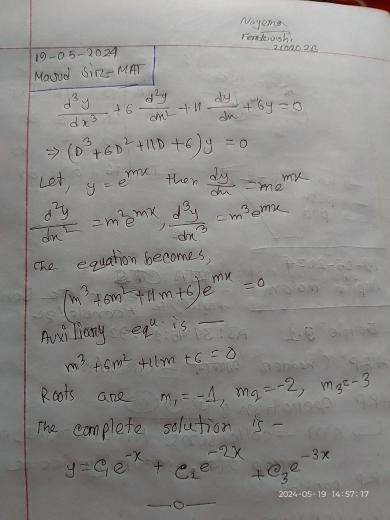 19-05-2024
Masud Sir-MAT
d³y/dx³ + 6 d²y/dx² + 11 dy/dx + 6y = 0
⇒ (D³ + 6D² + 11D + 6) y = 0
Let, y = e^mx then dy/dx = me^mx
d²y/dx² = m²e^mx, d³y/dx³ = m³e^mx
The equation becomes,
(m³ + 6m² + 11m + 6) e^mx = 0
Auxiliary equⁿ is —
m³ + 6m² + 11m + 6 = 0
Roots are m₁ = -1, m₂ = -2, m₃ = -3
The complete solution is -
y = C₁e^-x + C₂e^-2x + C₃e^-3x
2024-05-19 14:57:17
—0—